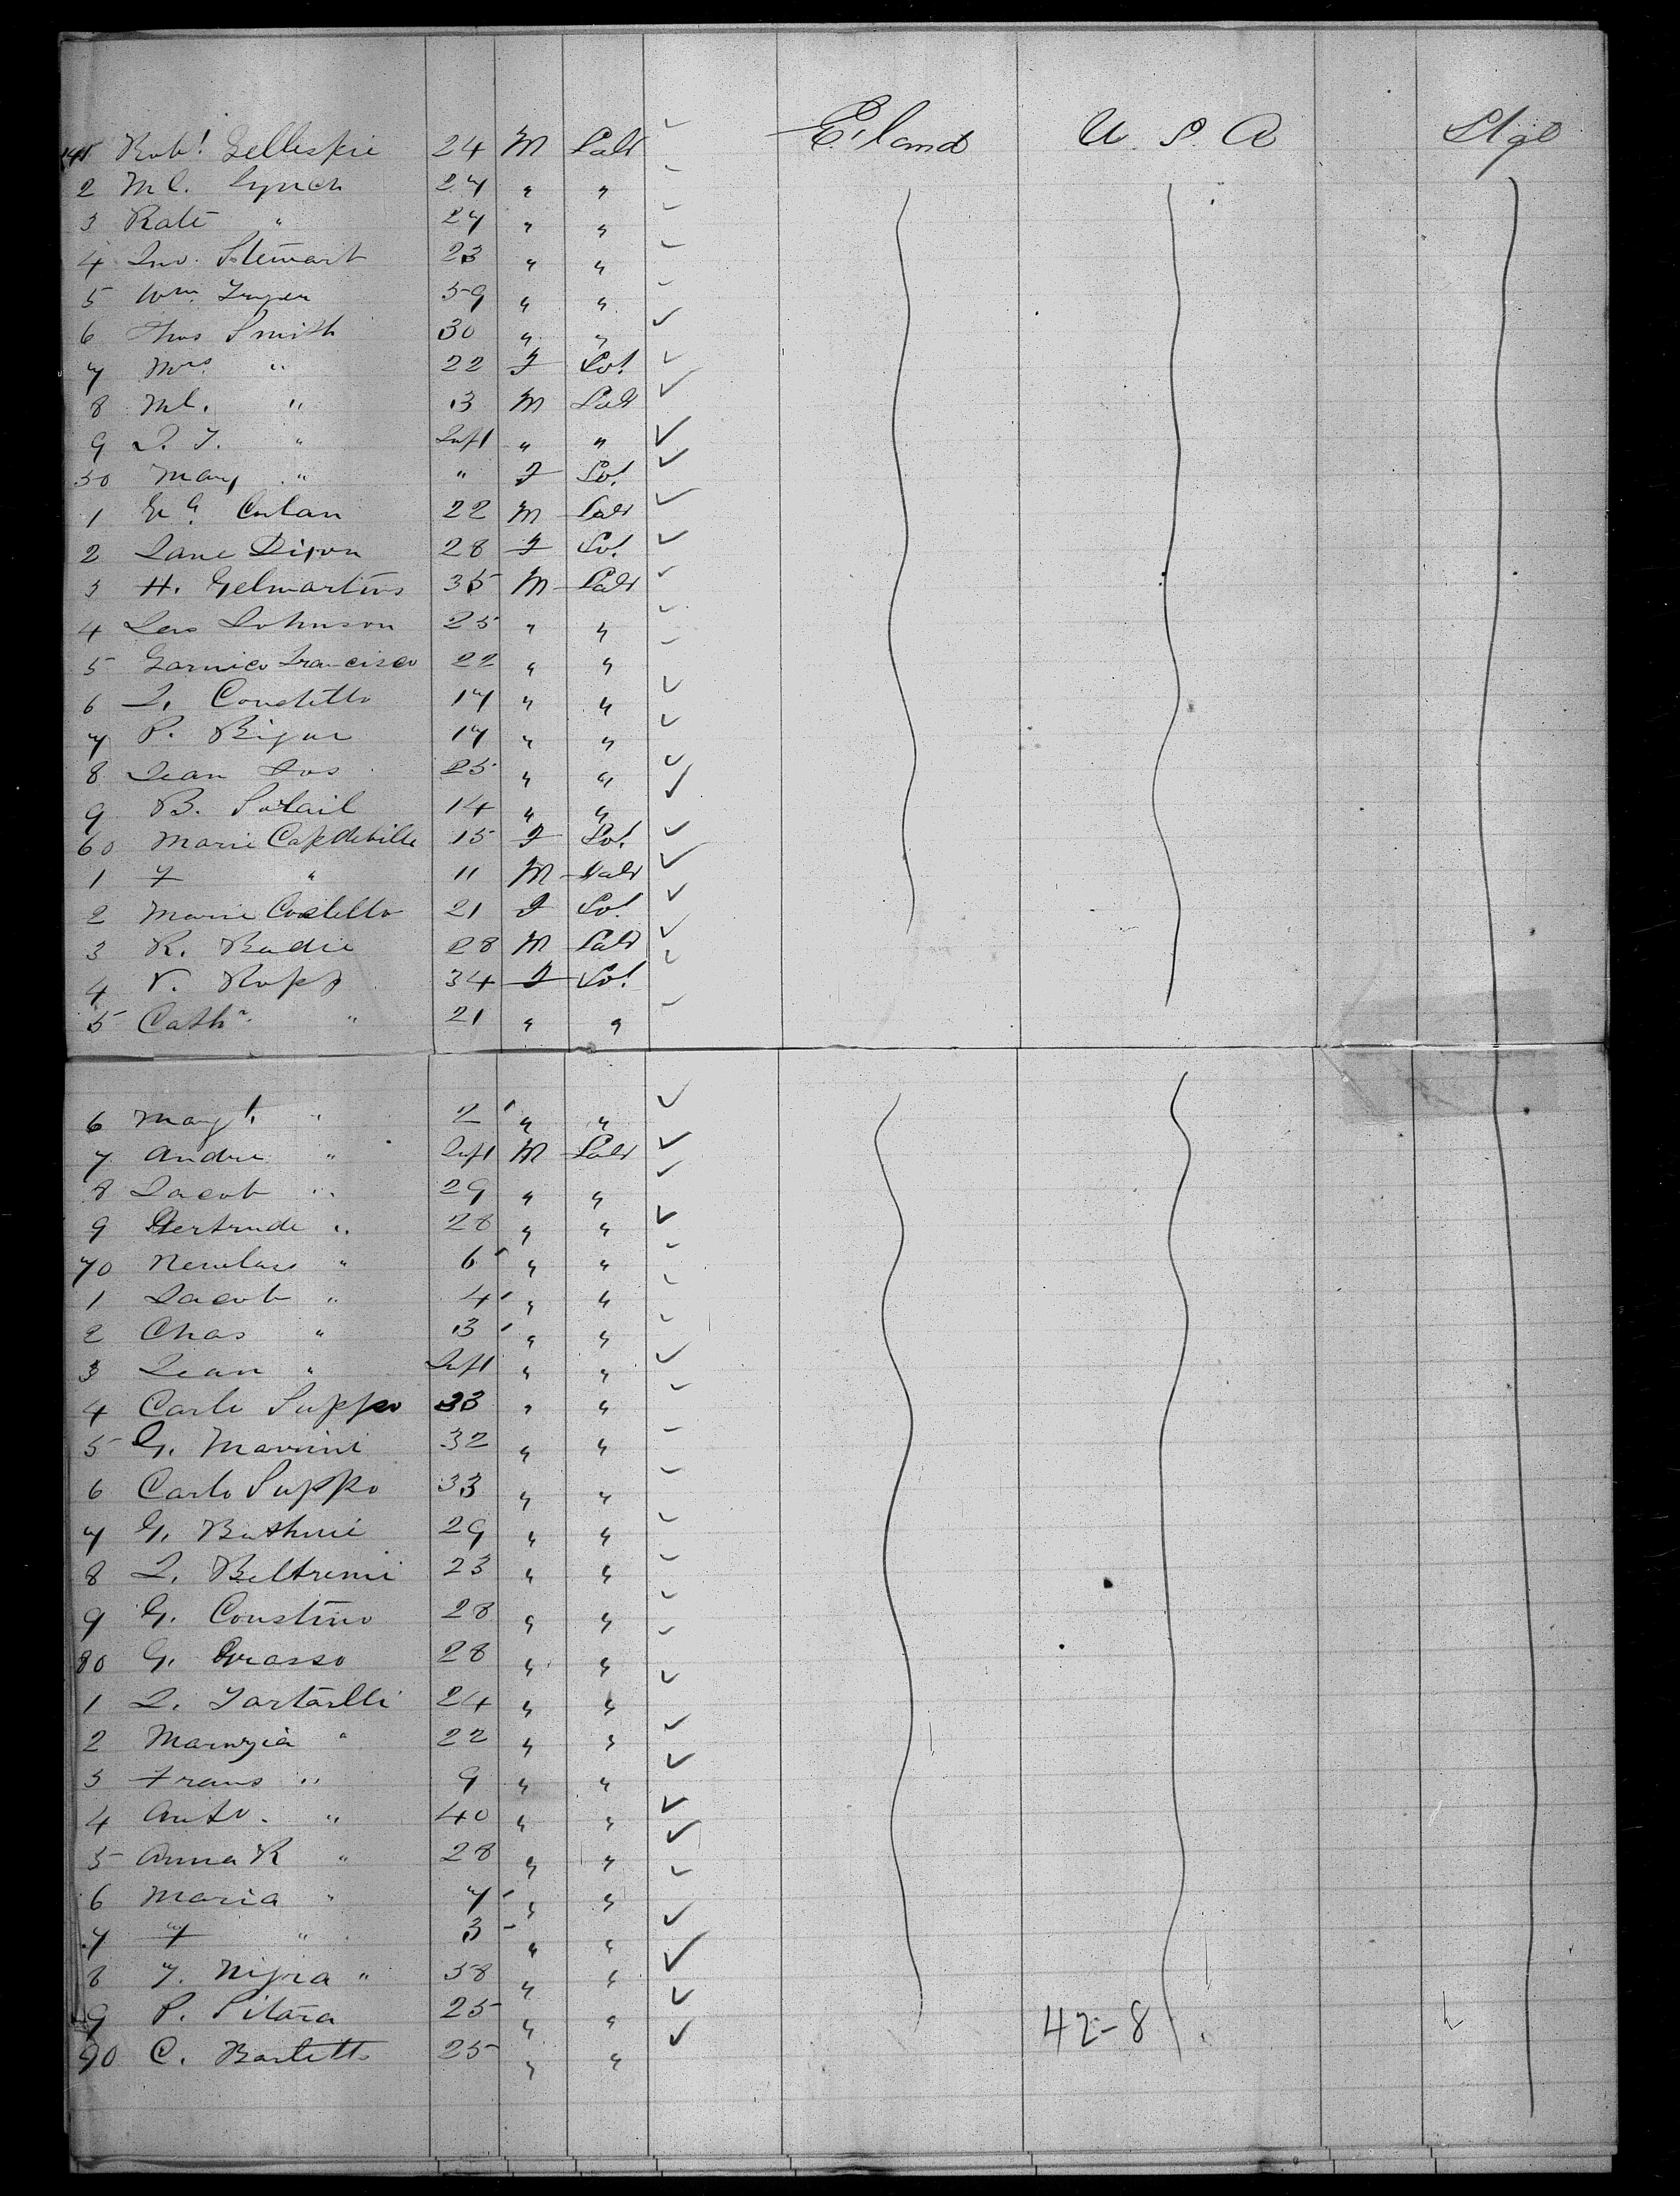 Robt. Gellespie 24 M Labr E'land U. S. A Stge
2 Ml. Lynch 27 " "
3 Kate " 27 " "
4 Jno. Stewart 23 " "
5 Wm. 59 " "
6 Thos Smith 30 " "
7 Mrs. " 22 F Spt
8 Ml. " 13 M Labr
9 J. T. " Inft " "
50 Mary " " F Spt
1 22 M Labr
2 Jane Dixon 28 F Spt
3 H. Gelmartins 35 M Labr
4 Johnson 25 " "
5 Garnico Francisco 22 " "
6 17 " "
7 P. 17 " "
8 Jean 25 " "
9 B. 14 " "
60 Marie Capdeville 15 F Spt
1 F " 11 M Labr
2 Marie Costello 21 F Spt
3 R. Badie 28 M Labr
4 V. Ropp 34 F Spt
5 Cathr. " 21 " "
6 Margt. " 2 " "
7 Andre " Inft M Labr
8 Jacob " 29 " "
9 Gertrude " 28 " "
70 " 6 " "
1 Jacob " 4 " "
2 Chas " 3 " "
3 Jean " Inft " "
4 Carlo Suppo 33 " "
5 G. Mannini 32 " "
6 Carlo Suppo 33 " "
7 G. 29 " "
8 J. Beltremi 23 " "
9 G. Constino 28 " "
80 G. Grasso 28 " "
1 J. Tartarlli 24 " "
2 " 22 " "
3 Frans " 9 " "
4 Anto. " 40 " "
5 Anna R " 28 " "
6 Maria " 7 " "
7 F " 3 " "
8 Nigra " 38 " "
9 P. Pitara 25 " " 42-8
90 C. Bartetto 25 " "